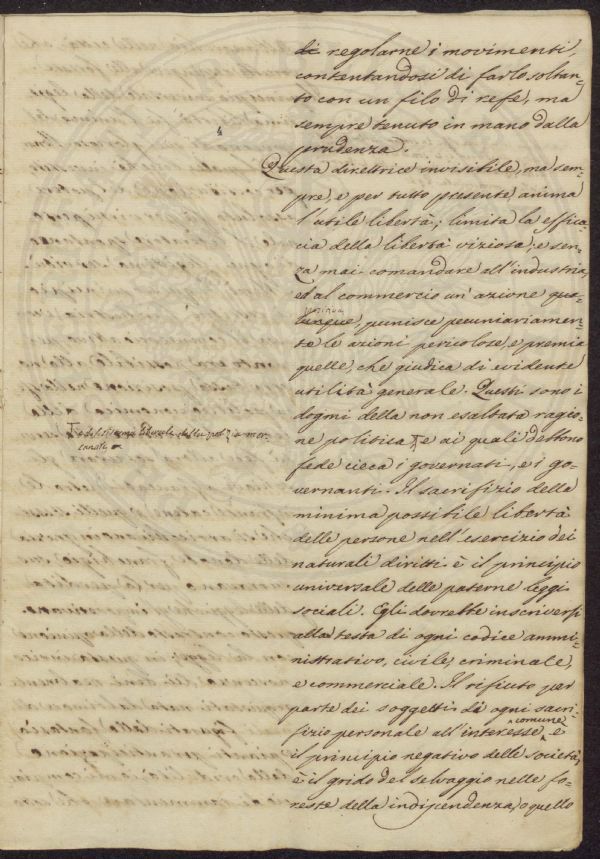 di regolarne i movimenti,
contentandosi di farlo soltan=
to con un filo di refe, ma
sempre tenuto in mano dalla
prudenza.
Questa direttrice invisibile, ma sem=
pre, e per tutto presente, anima
l'utile libertà, limita la effica=
cia della libertà viziosa, e sen=
za mai comandare all'industria,
ed al commercio un'azione qua=
lunque, punisce pecuniariamen=
te le azioni pericolose, e premia
quelle, che giudica di evidente
utilità generale. Questi sono i
dogmi della non esaltata ragio=
ne politica e ai quali debbono
e del sistema liberale della mer=
cantile
fede cieca i governati, e i go=
vernanti. Il sacrifizio della
minima possibile libertà
delle persone nell'esercizio dei
naturali diritti è il principio
universale delle paterne leggi
sociali. Egli dovrebbe inscriversi
alla testa di ogni codice ammi=
nistrativo, civile, criminale,
e commerciale. Il rifiuto per
parte dei soggetti di ogni sacri=
fizio personale all'interesse comune è
il principio negativo delle società,
è il grido del selvaggio nelle fo=
reste della indipendenza, o quello